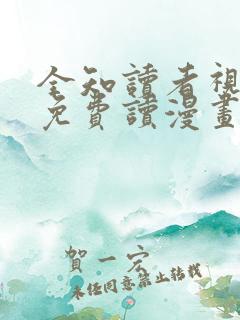 全知讀者視
免費讀漫畫
賀一宏
未經同意禁止轉載